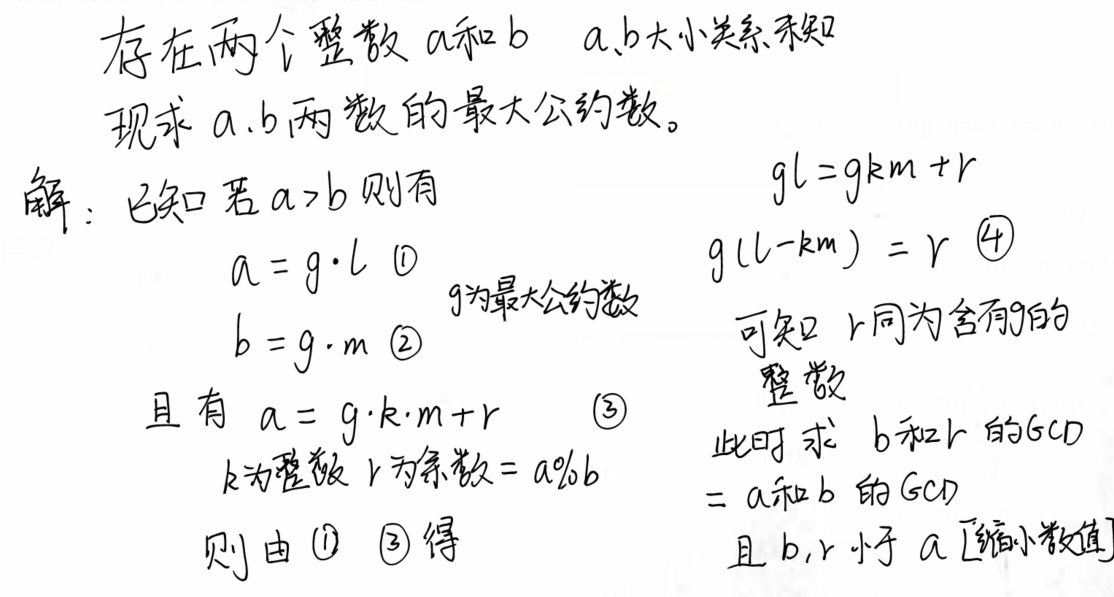 存在两个整数 a和b a、b大小关系未知
现求 a.b两数的最大公约数。
解: 已知 若 a>b 则有
a = g·l ①
g为最大公约数
b = g·m ②
且有 a = g·k·m+r ③
k为整数 r为余数 = a%b
则由 ① ③ 得
gl = gkm + r
g(l-km) = r ④
可知 r同为含有g的
整数
此时求 b和r 的GCD
= a和b 的 GCD
且 b,r 小于 a [缩小数值]